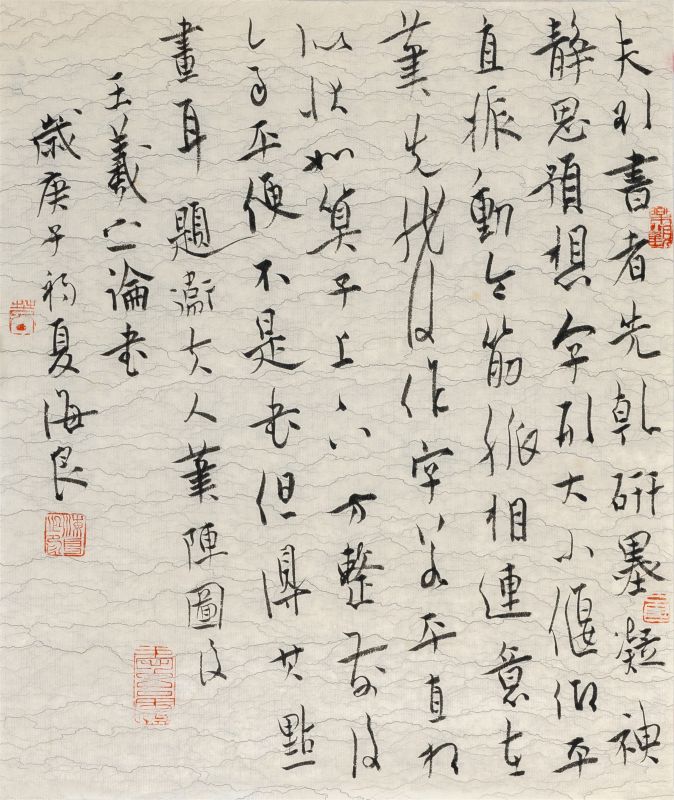 夫欲書者先乾研墨凝神
静思預想字形大小偃仰平
直振動令筋脈相連意在
筆先然後作字若平直相
似狀如算子上下方整前後
齊平便不是書但得其點
畫耳 題衛夫人筆陣圖後
王羲之論書
歲庚子初夏海良